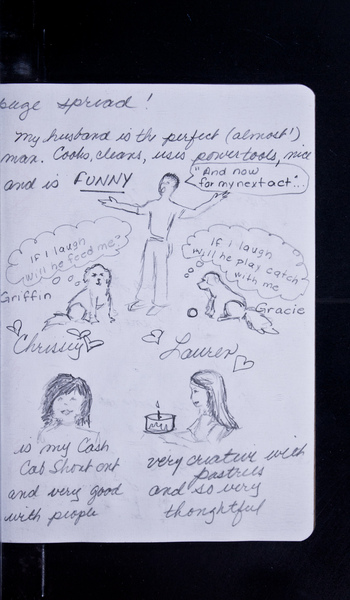 page spread!
My husband is the perfect (almost!)
man. Cooks, cleans, uses powertools, nice
and is FUNNY
"And now
for my next act"...
If I laugh
will he feed me?
If I laugh
will he play catch
with me
Griffin
Gracie
Chrissy
Lauren
is my Cash
Cab Shout out
and very good
with people
very creative with
pastries
and so very
thoughtful